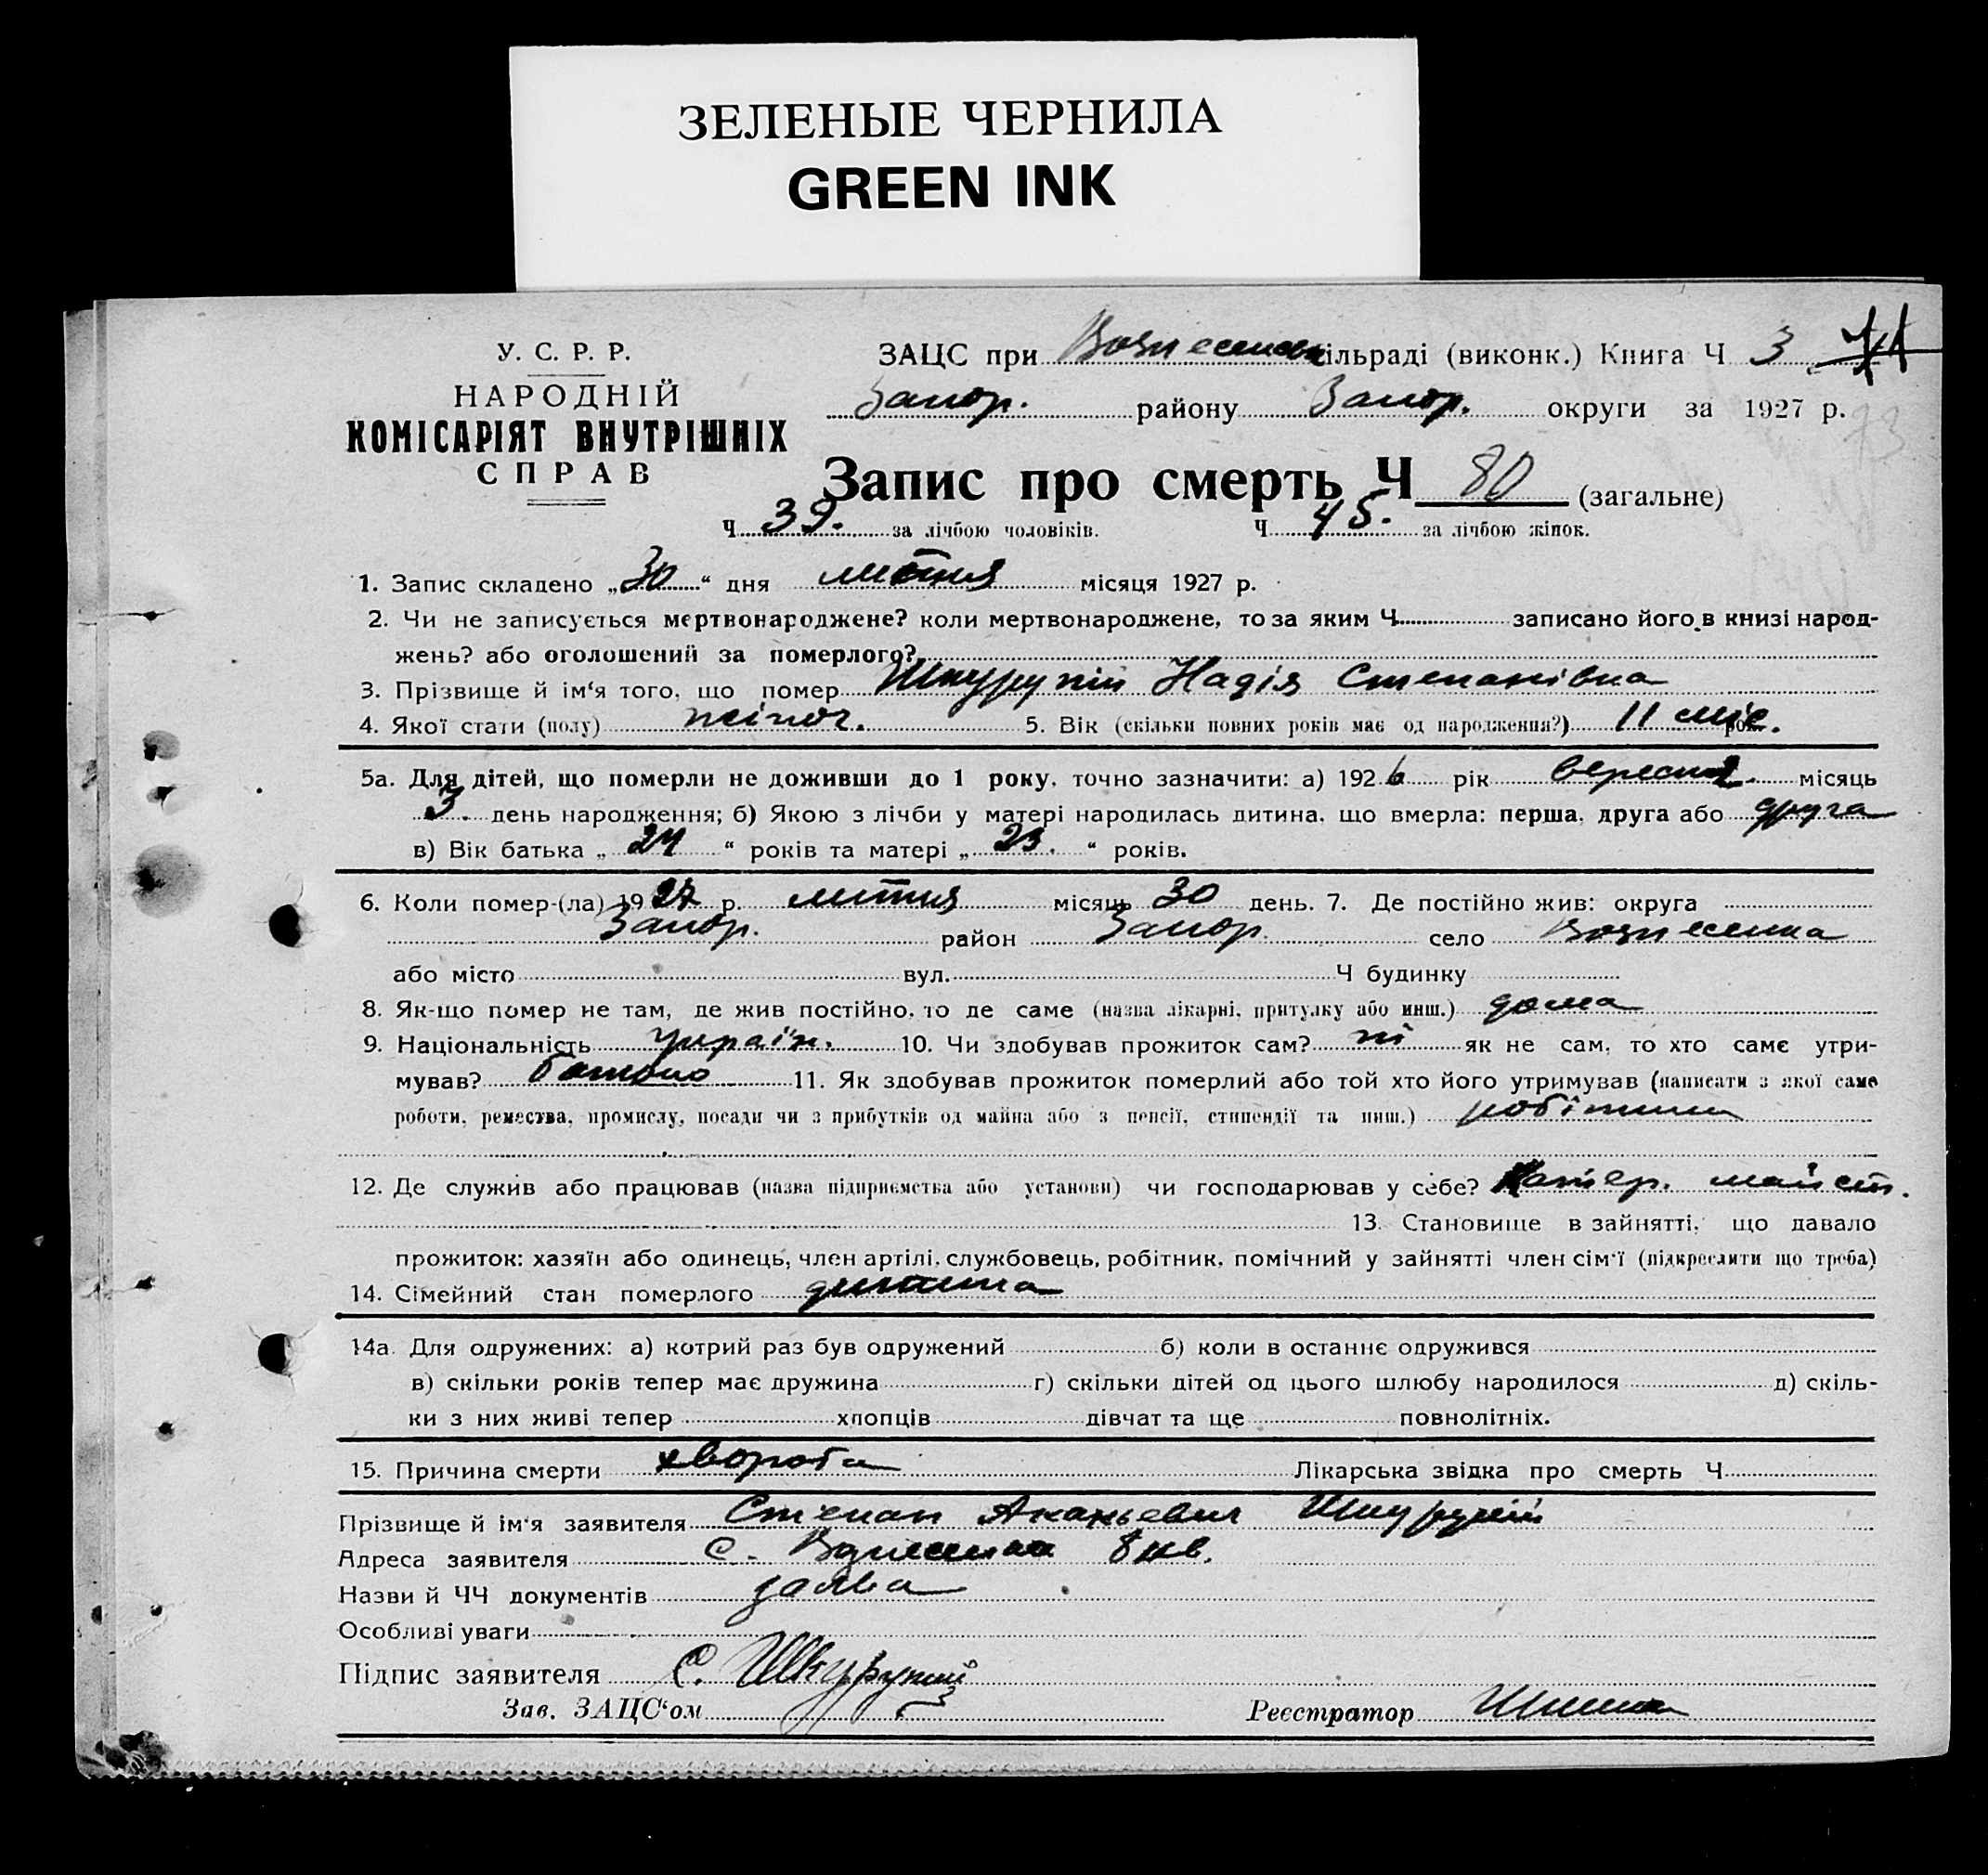 ЗЕЛЕНЫЕ ЧЕРНИЛА
GREEN INK
У. С. Р. Р.
НАРОДНІЙ
КОМІСАРІЯТ ВНУТРІШНІХ
СПРАВ
ЗАЦС при Вознесенск сільраді (виконк.) Книга Ч 3
Запор. району Запор. округи за 1927 р.
73
Запис про смерть Ч 80 (загальне)
Ч 39. за лічбою чоловіків. Ч 45. за лічбою жінок.
1. Запис складено „30“ дня липня місяця 1927 р.
2. Чи не записується мертвонароджене? коли мертвонароджене, то за яким Ч записано його в книзі народ-
жень? або оголошений за померлого?
3. Прізвище й ім‘я того, що помер Шкурупій Надія Степанівна
4. Якої стати (полу) жіноч. 5. Вік (скільки повних років має од народження?) 11 міс. рок.
5а. Для дітей, що померли не доживши до 1 року, точно зазначити: а) 1926 рік вересня місяць
3. день народження; б) Якою з лічби у матері народилась дитина, що вмерла: перша, друга або друга
в) Вік батька „24“ років та матері „23.“ років.
6. Коли помер-(ла) 1927 р. липня місяць 30 день. 7. Де постійно жив: округа
Запор. район Запор. село Вознесенка
або місто вул. Ч будинку
8. Як-що помер не там, де жив постійно, то де саме (назва лікарні, притулку або инш.) дома
9. Національність україн. 10. Чи здобував прожиток сам? ні як не сам, то хто саме утри-
мував? батько 11. Як здобував прожиток померлий або той хто його утримував (написати з якої саме
роботи, ремества, промислу, посади чи з прибутків од майна або з пенсії, стипендії та инш.) робітник
12. Де служив або працював (назва підприємства або установи) чи господарював у себе? майст.
13. Становище в зайнятті, що давало
прожиток: хазяїн або одинець, член артілі, службовець, робітник, помічний у зайнятті член сім‘ї (підкреслити що треба)
14. Сімейний стан померлого дитина
14а. Для одружених: а) котрий раз був одружений б) коли в останнє одружився
в) скільки років тепер має дружина г) скільки дітей од цього шлюбу народилося д) скіль-
ки з них живі тепер хлопців дівчат та ще повнолітніх.
15. Причина смерти хвороба Лікарська звідка про смерть Ч
Прізвище й ім‘я заявителя Степан Ананьевич Шкурупій
Адреса заявителя с. Вознесенка 8 кв.
Назви й ЧЧ документів заява
Особливі уваги
Підпис заявителя С. Шкурупий
Зав. ЗАЦС‘ом Реєстратор